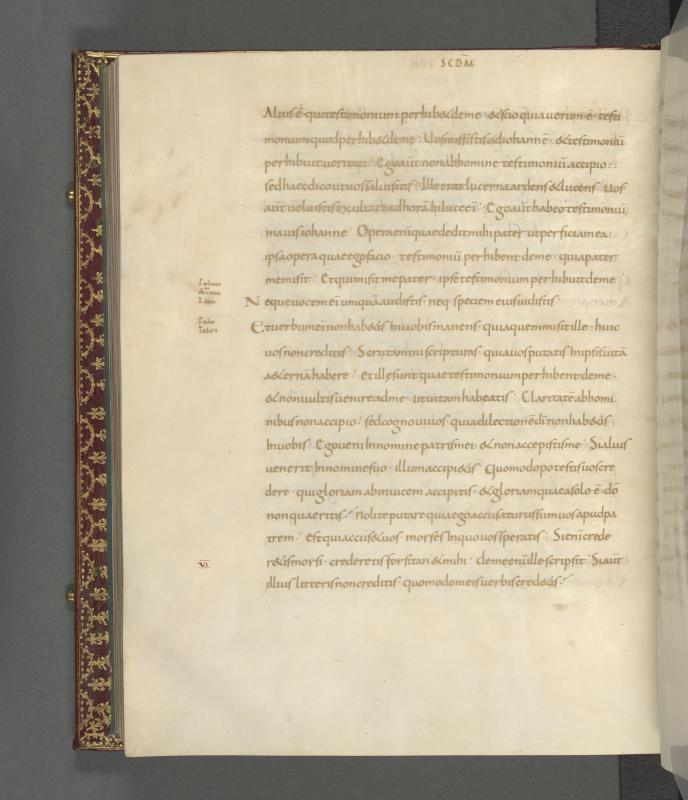 SCDM
Alius ē qui testimonium perhib& de me · & scio quia uerum ē · testi
monium quod perhib& de me · Uos misistis ad iohannē · & testimoniū
perhibuit ueritati · Ego aūt non ab homine testimoniū accipio ·
sed haec dico ut uos salui sitis · Ille erat lucerna ardens & lucens · Uos
aūt uoluistis exultare ad horā in luce ei · Ego aūt habeo testimoniū
maius iohanne · Opera eni quae dedit mihi pater ut perficiam ea ·
ipsa opera quae ego facio · testimoniū perhibent de me · quia pater
me misit · Et qui misit me pater · ipse testimonium perhibuit de me ·
N eque uocem ei umquā audistis · neq speciem eius uidistis ·
Et uerbum ei non hab&is in uobis manens · quia quem misit ille · huic
uos non creditis · Scrutamini scripturas · quia uos putatis in ipsis uitā
a&ernā habere · et illae sunt quae testimonium perhibent de me ·
& non uultis uenire ad me · ut uitam habeatis · Claritatē ab homi
nibus non accipio · sed cognoui uos · quia dilectionē di non hab&is
In uobis · Ego ueni in nomine patris mei · & non accepistis me · Si alius
uenerit in nomine suo · illum accipi&is · Quomodo potestis uos cre
dere · qui gloriam ab inuicem accipitis · & gloriam quae a solo ē do
non quaeritis · Nolite putare quia ego accusaturus sum uos apud pa
trem · Est qui accus& uos · moises in quo uos speratis · Si eni crede
r&is moisi · crederetis forsitan & mihi · de me eni ille scripsit · Si aūt
VI
illius litteris non creditis · quomodo meis uerbis cred&is ·